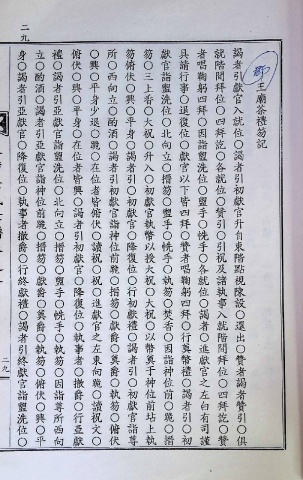 王廟茶禮笏記
謁者引獻官入就位○謁者引初獻官升自東階點視陳設○還出○贊者謁者贊引○俱
就階間拜位○四拜訖○各就位○贊引○引祝及諸執事入就階間拜位○四拜訖○贊
者唱鞠躬四拜○因詣盥洗位○盥手○帨手○各就位○謁者○進獻官之左白有司謹
具請行事○退復位○獻官以下皆四拜○贊者唱鞠躬四拜○行奠幣禮○謁者引○初
獻官詣盥洗位○北向立○搢笏○盥手○帨手○執笏○因詣神位前○跪○搢
笏○三上香○大祝○升入○初獻官執幣以授大祝○大祝○以幣奠于神位前坫上執
笏俯伏○興○平身○謁者引○初獻官○降復位○行初獻禮○謁者引○初獻官詣尊
所○西向立○酌酒○謁者引初獻官詣神位前跪○搢笏○獻爵○奠爵○執笏○俯伏
○興○平身少退○跪○在位者皆俯伏○讀祝○祝○進獻官之左東向跪○讀祝文○
俯伏○興○平身○在位者皆興○謁者引○初獻官○降復位○執事者撤爵○行亞獻
禮○謁者引亞獻官詣盥洗位○北向立○搢笏○盥手○帨手○執笏○因詣尊所西向
立○酌酒○謁者引亞獻官詣神位前跪○搢笏○獻爵○奠爵○執笏○俯伏○興○平
身謁者引亞獻官○降復位○執事者撤爵○行終獻禮○謁者引終獻官詣盥洗位○
二九
二九